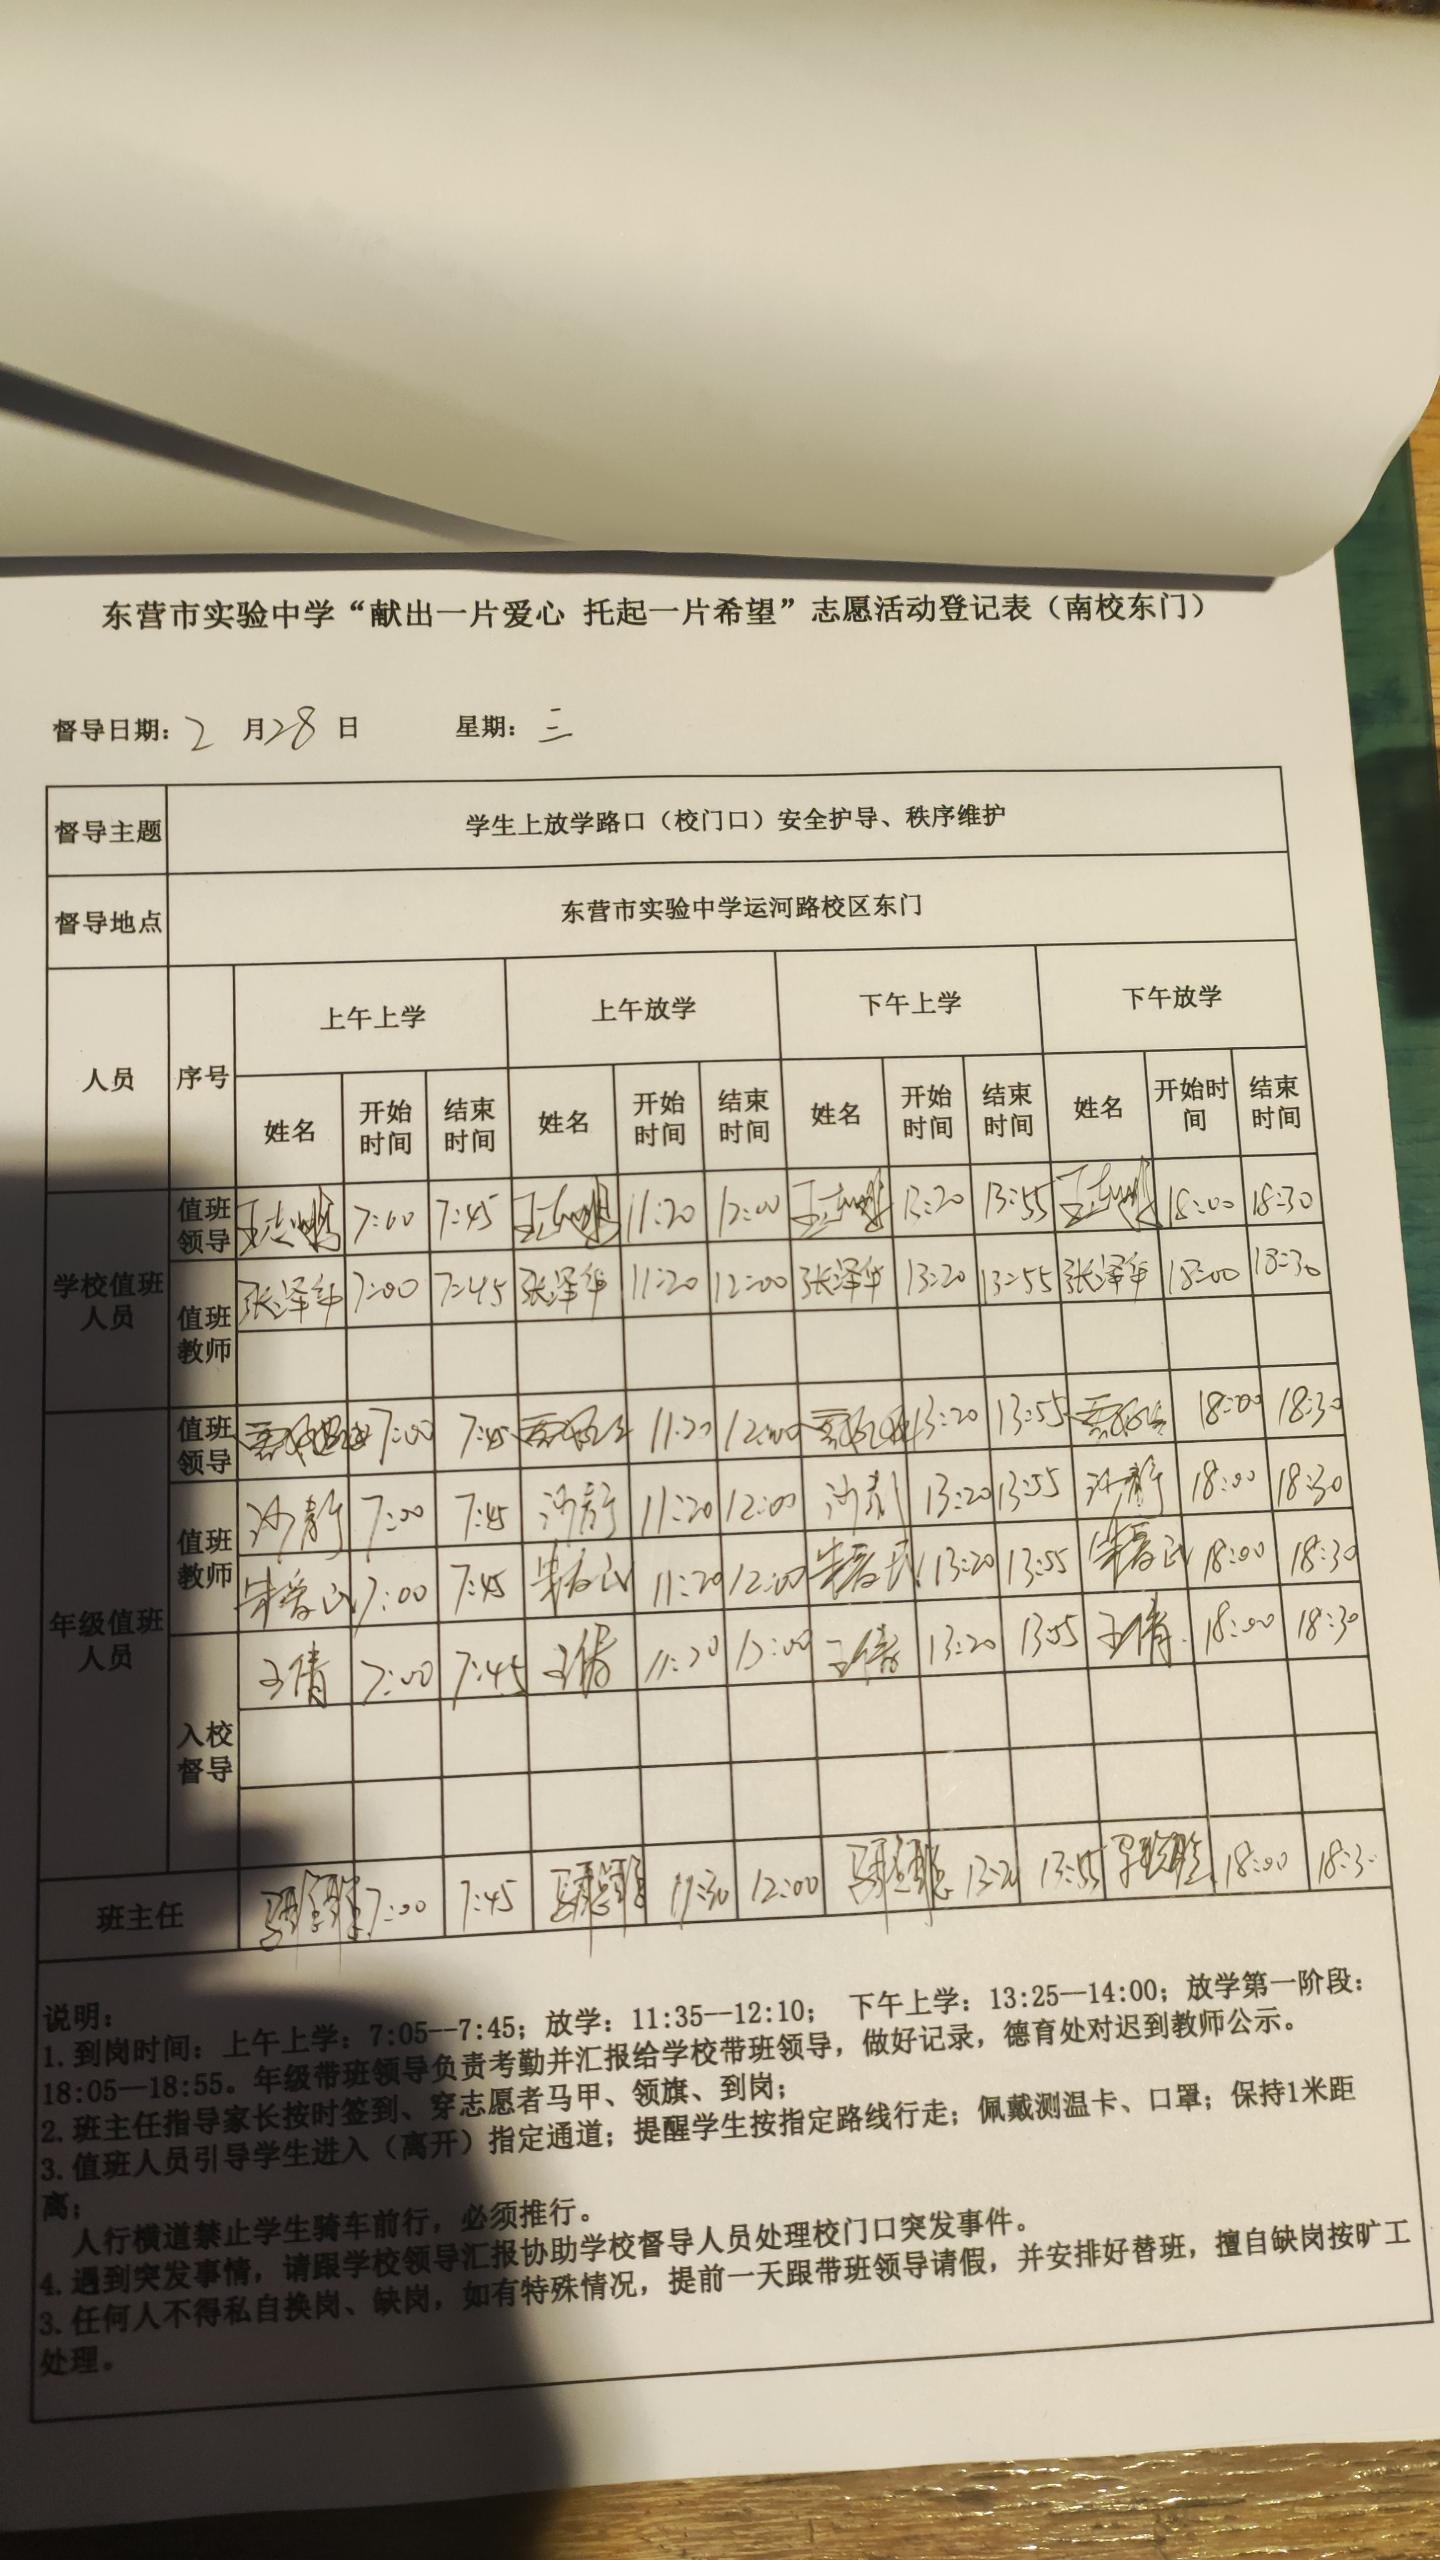 东营市实验中学“献出一片爱心 托起一片希望”志愿活动登记表（南校东门）
督导日期：2 月28 日 星期：三
督导主题 学生上放学路口（校门口）安全护导、秩序维护
督导地点 东营市实验中学运河路校区东门
人员 序号 上午上学 上午放学 下午上学 下午放学
姓名 开始时间 结束时间 姓名 开始时间 结束时间 姓名 开始时间 结束时间 姓名 开始时间 结束时间
学校值班人员 值班领导 7:00 7:45 11:20 12:00 13:20 13:55 18:00 18:30
值班教师 张泽华 7:00 7:45 张泽华 11:20 12:00 张泽华 13:20 13:55 张泽华 18:00 18:30
年级值班人员 值班领导 7:00 7:45 11:20 12:00 13:20 13:55 18:00 18:30
值班教师 7:00 7:45 11:20 12:00 13:20 13:55 18:00 18:30
7:00 7:45 11:20 12:00 13:20 13:55 18:00 18:30
入校督导 王倩 7:00 7:45 王倩 11:20 12:00 王倩 13:20 13:55 王倩 18:00 18:30
班主任 7:00 7:45 11:30 12:00 13:20 13:55 18:00 18:30
说明：
1.到岗时间：上午上学：7:05--7:45；放学：11:35--12:10； 下午上学：13:25--14:00；放学第一阶段：
18:05--18:55。年级带班领导负责考勤并汇报给学校带班领导，做好记录，德育处对迟到教师公示。
2.班主任指导家长按时签到、穿志愿者马甲、领旗、到岗；
3.值班人员引导学生进入（离开）指定通道；提醒学生按指定路线行走；佩戴测温卡、口罩；保持1米距
离；
人行横道禁止学生骑车前行，必须推行。
4.遇到突发事情，请跟学校领导汇报协助学校督导人员处理校门口突发事件。
3.任何人不得私自换岗、缺岗，如有特殊情况，提前一天跟带班领导请假，并安排好替班，擅自缺岗按旷工
处理。